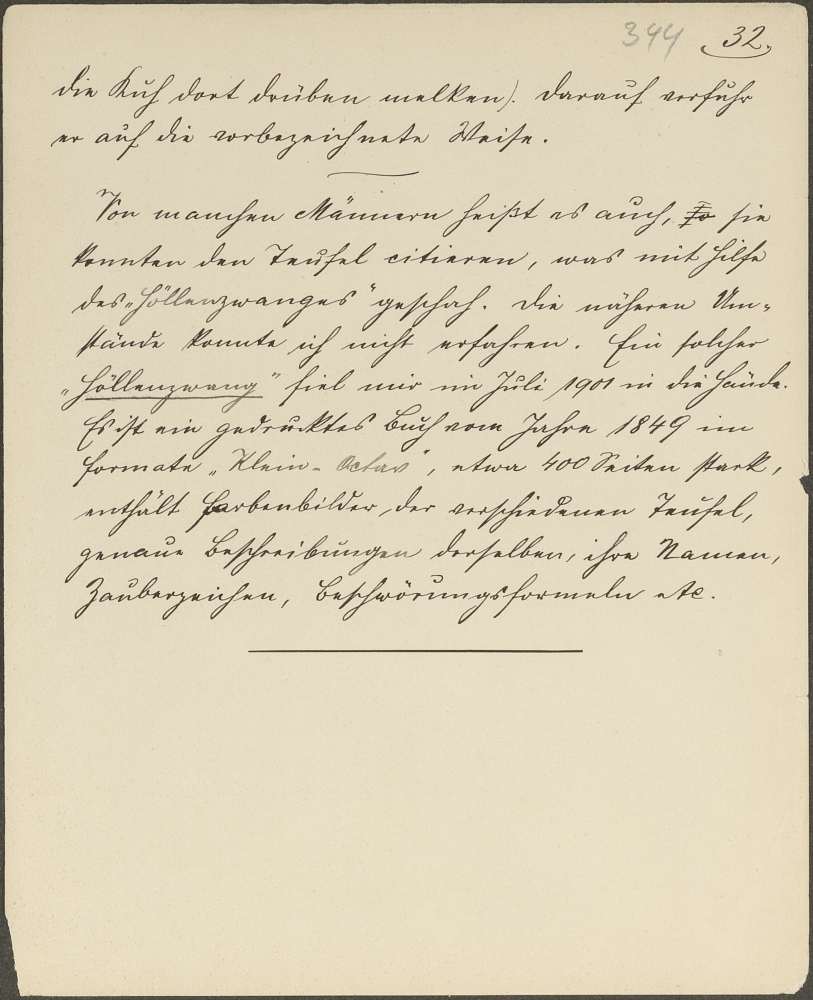 344 32.
die Kuh dort drüben melken). Darauf verfuhr
er auf die vorbezeichnete Weise.
Von manchen Männern heißt es auch, sie
konnten den Teufel citieren, was mit Hilfe
des „Höllenzwanges" geschah. Die näheren Um-
stände konnte ich nicht erfahren. Ein solcher
„Höllenzwang" fiel mir im Juli 1901 in die Hände.
Es ist ein gedrucktes Buch vom Jahre 1849 im
Formate „Klein-Octav", etwa 400 Seiten stark,
enthält Farbenbilder der verschiedenen Teufel,
genaue Beschreibungen derselben, ihre Namen,
Zauberzeichen, Beschwörungsformeln etc.